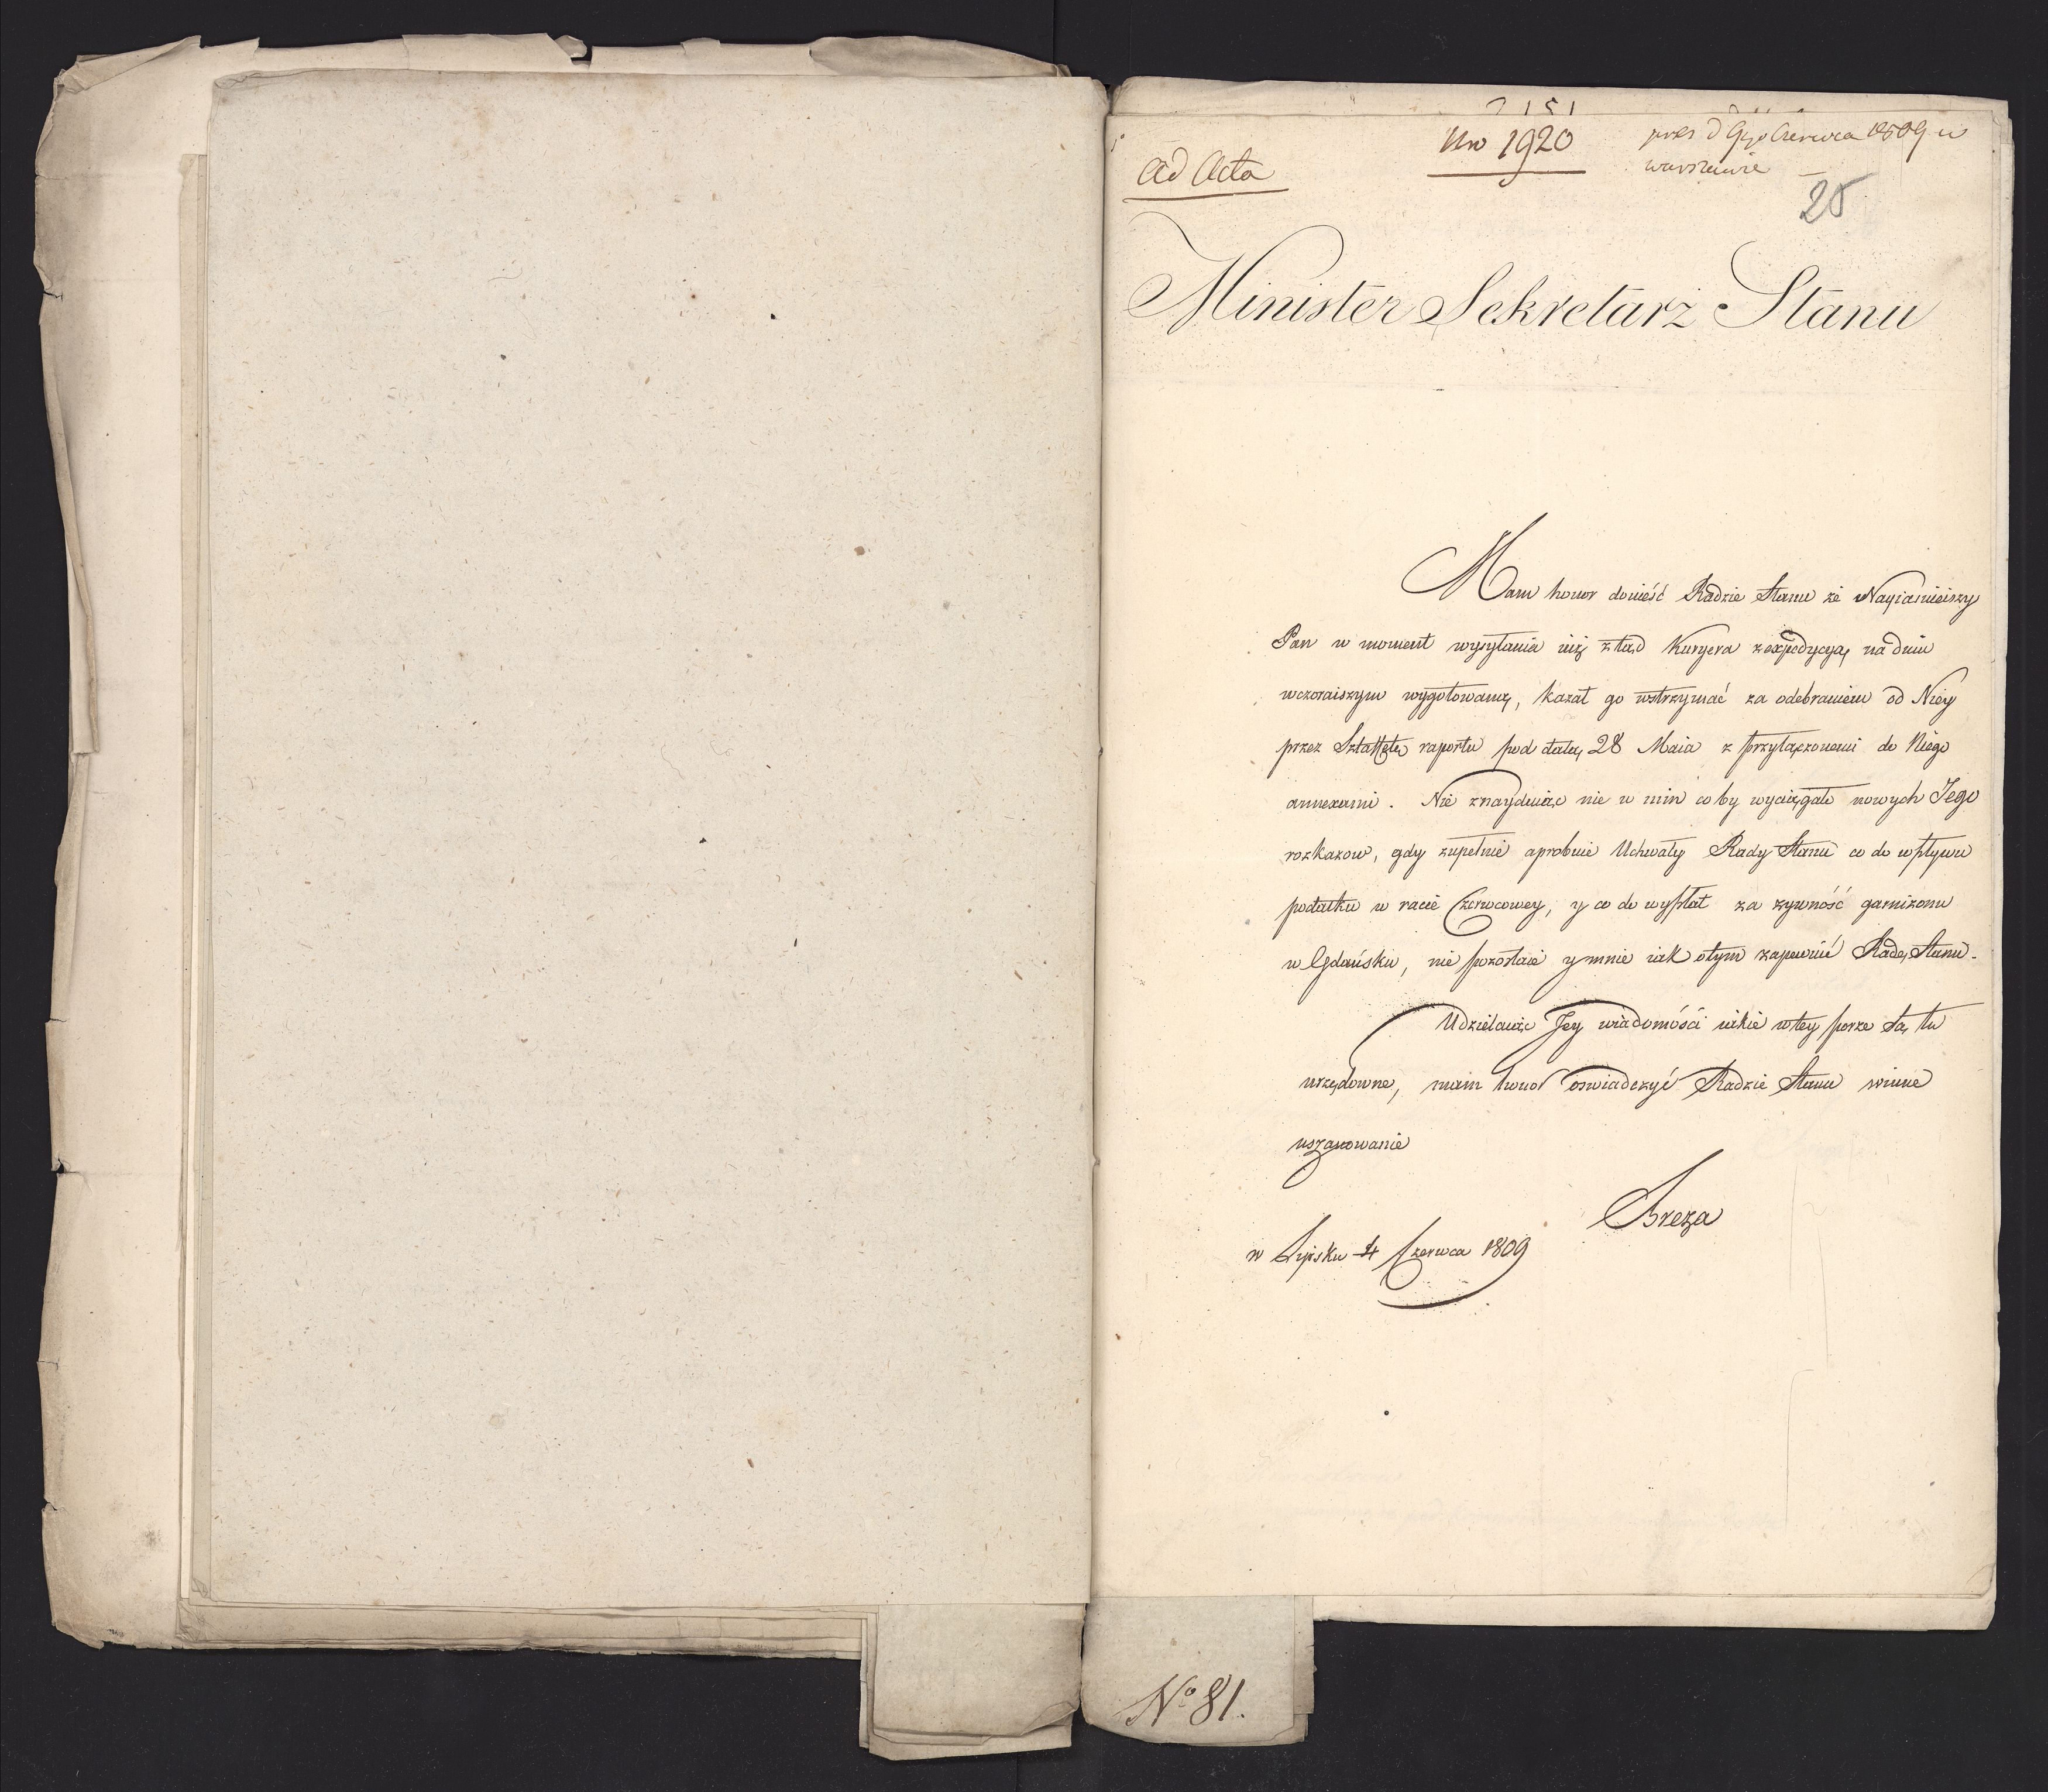 Nro 1920
pres d 9go Czerwca 1809 w
warszawie
ad Acta
25
Minister Sekretarz Stanu
Mam honor donieść Radzie Stanu że Nayiaśnieiszy
Pan w moment wysyłania iuż ztąd Kuryera z expedycyą na dniu
wczoraiszym wygotowaną, kazał go wstrzymać za odebraniem od Niey
przez Sztaffetę raportu pod datą 28 Maia z przyłączonemi do Niego
annexami. Nie znayduiąc nic w nim coby wyciągało nowych Jego
rozkazow, gdy zupełnie aprobuie Uchwały Rady Stanu co do wpływu
podatku w racie Czerwcowey, y co do wypłat za żywność garnizonu
w Gdańsku, nie pozostaie y mnie iak o tym zapewnić Radę Stanu.
Udzielaiąc Jey wiadomości iakie w tey porze są tu
urzędowne, mam honor oświadczyć Radzie Stanu winne
uszanowanie
Breza
w Lipsku 4 Czerwca 1809
No 81.